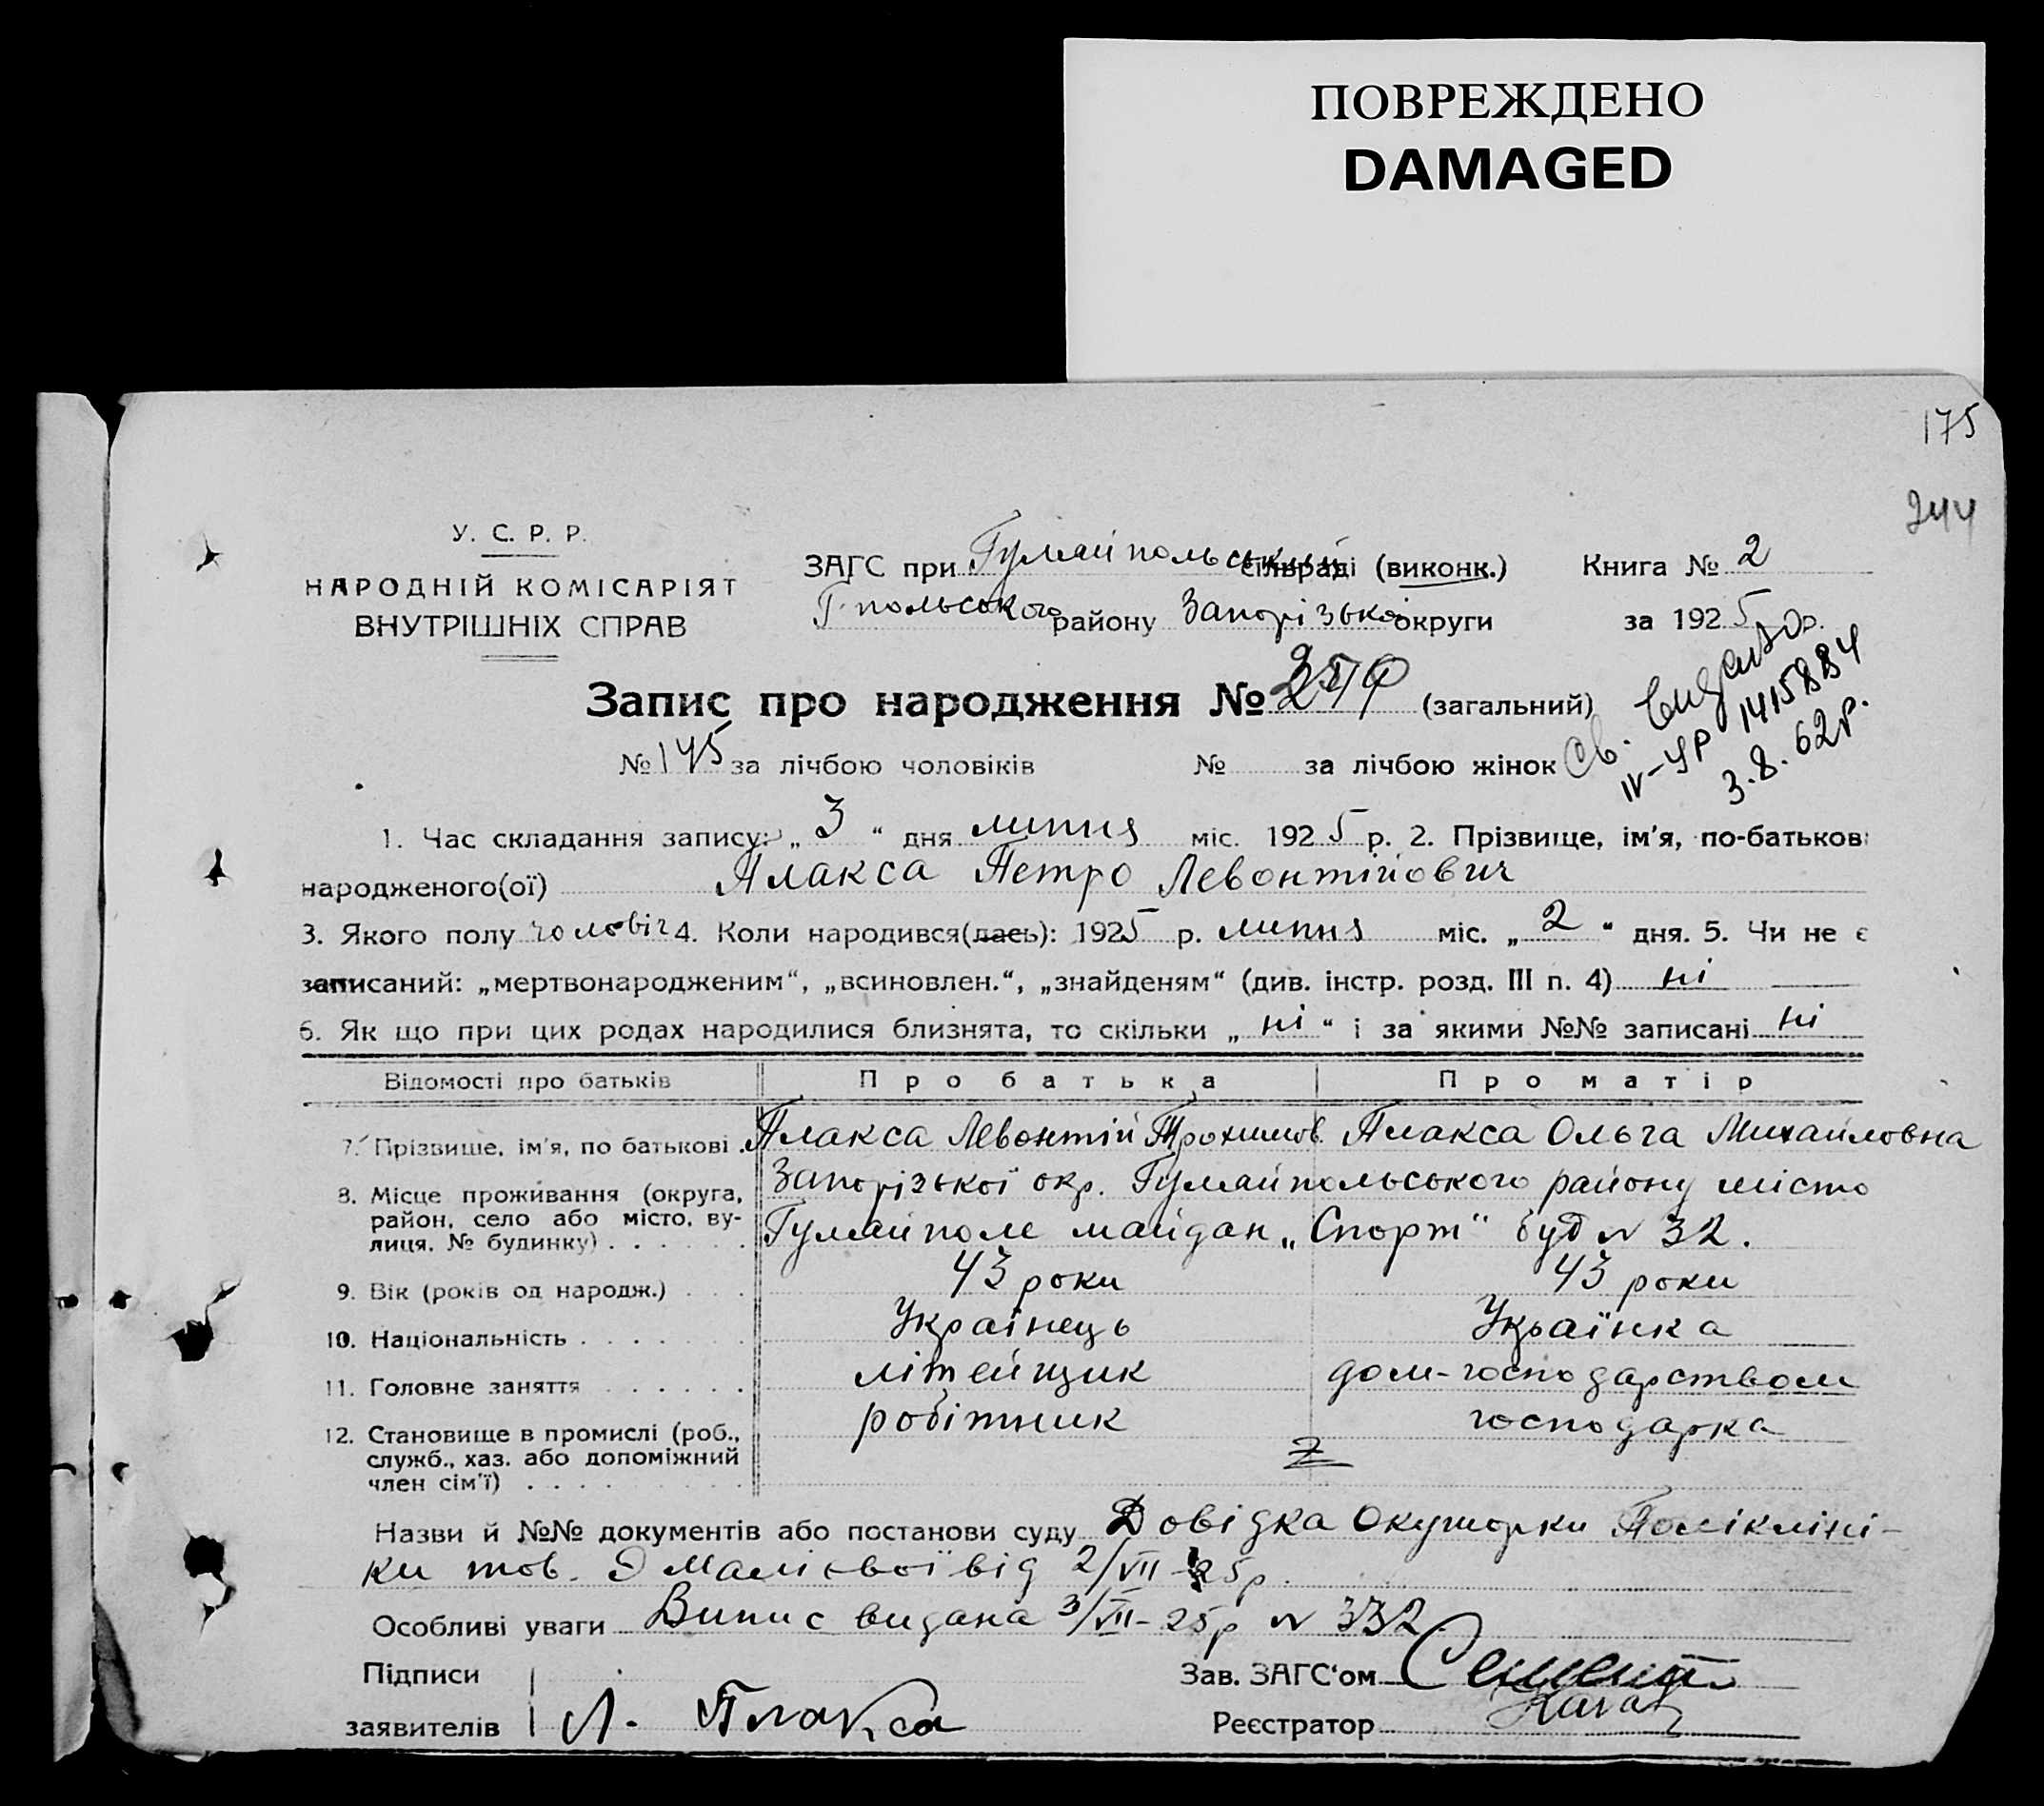 ПОВРЕЖДЕНО
DAMAGED
175
244
У. С. Р. Р.
НАРОДНІЙ КОМІСАРІЯТ
ВНУТРІШНІХ СПРАВ
ЗАГС при Гуляйпольський сільраді (виконк.) Книга № 2
Г-польського району Запорізької округи за 1925 р.
Запис про народження № (загальний)
Св. видано
IV-УР 1415884
3.8.62р.
№ 145 за лічбою чоловіків № за лічбою жінок
1. Час складання запису: „ 3 “ дня липня міс. 1925 р. 2. Прізвище, ім'я, по-батькові
народженого(ої) Плакса Петро Левонтійович
3. Якого полу чоловіч 4. Коли народився(лась): 1925 р. липня міс. „ 2 “ дня. 5. Чи не є
записаний: „мертвонародженим“, „всиновлен.“, „знайденям“ (див. інстр. розд. III п. 4) ні
6. Як що при цих родах народилися близнята, то скільки „ ні “ і за якими №№ записані ні
Відомості про батьків Про батька Про матір
7. Прізвище, ім'я, по батькові . Плакса Левонтій Трохимов. Плакса Ольга Михайловна
8. Місце проживання (округа, район, село або місто, вулиця, № будинку) . . . . . . Запорізької окр. Гуляйпольського району місто
Гуляйполе майдан „Спорт“ буд № 32.
9. Вік (років од народж.) . . . 43 роки 43 роки
10. Національність . . . . . . . Українець Українка
11. Головне заняття . . . . . . літейщик дом-господарством
12. Становище в промислі (роб., робітник господарка
служб., хаз. або допоміжний
член сім'ї) . . . . . . . . .
Назви й №№ документів або постанови суду Довідка Окушорки Полікліні-
ки тов. від 2/VII-25р.
Особливі уваги Випис видана 3/VII-25р № 332
Підписи Зав. ЗАГС'ом
заявителів Л. Плакса Реєстратор